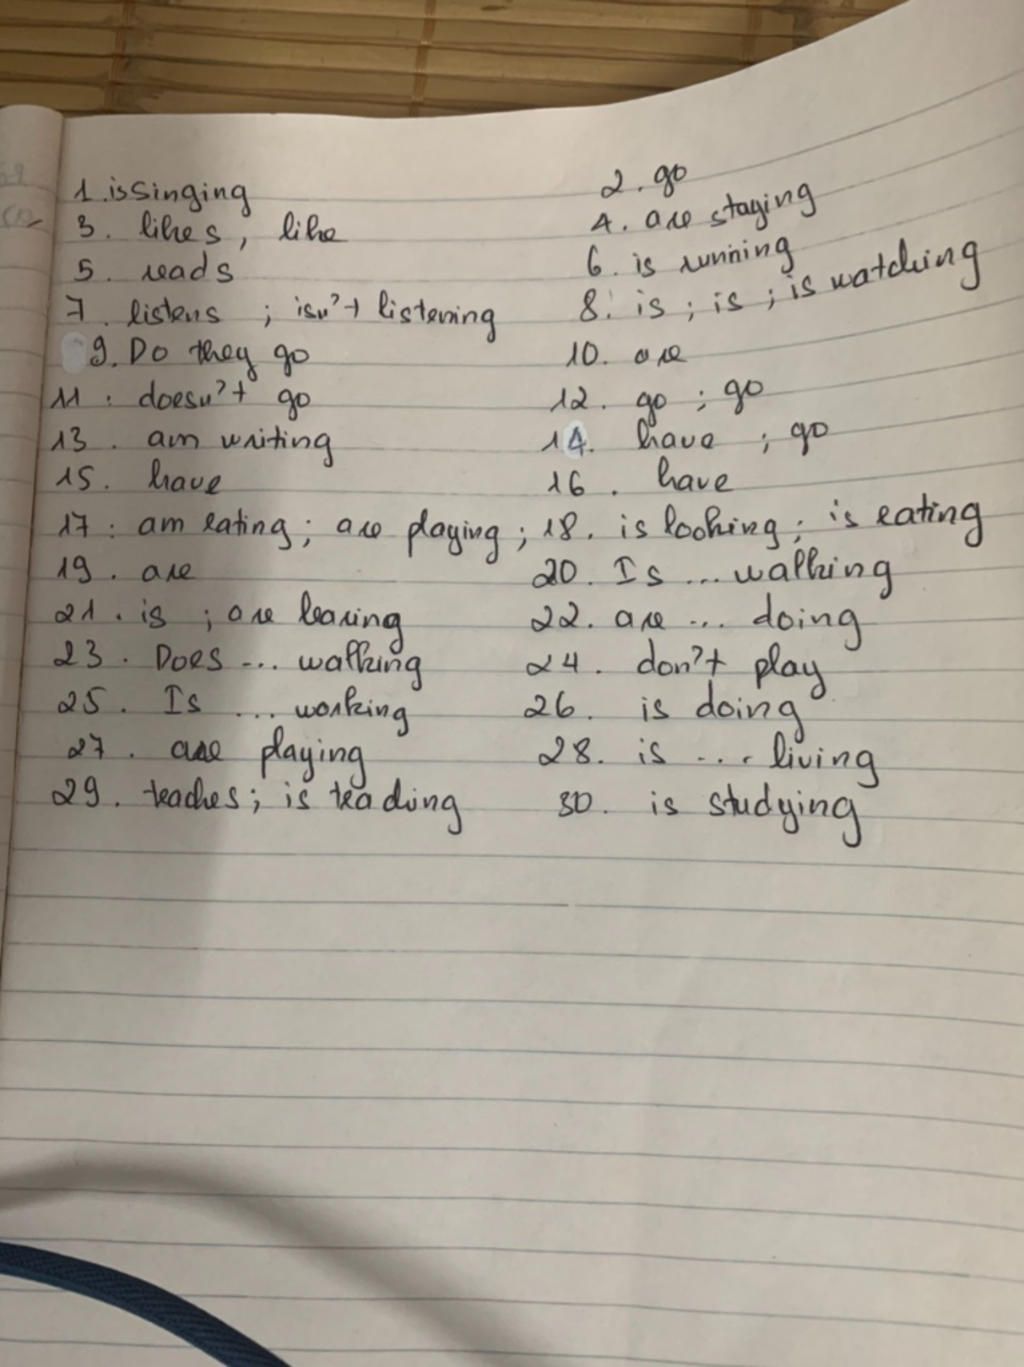 1. is singing 2. go
3. likes, like 4. are staying
5. reads 6. is running
7. listens ; isn't listening 8. is ; is ; is watching
9. Do they go 10. are
11. doesn't go 12. go ; go
13. am writing 14. have ; go
15. have 16. have
17. am eating; are playing; 18. is looking; is eating
19. are 20. Is ... walking
21. is ; are leaving 22. are ... doing
23. Does ... walking 24. don't play
25. Is ... working 26. is doing
27. are playing 28. is ... living
29. teaches; is teaching 30. is studying